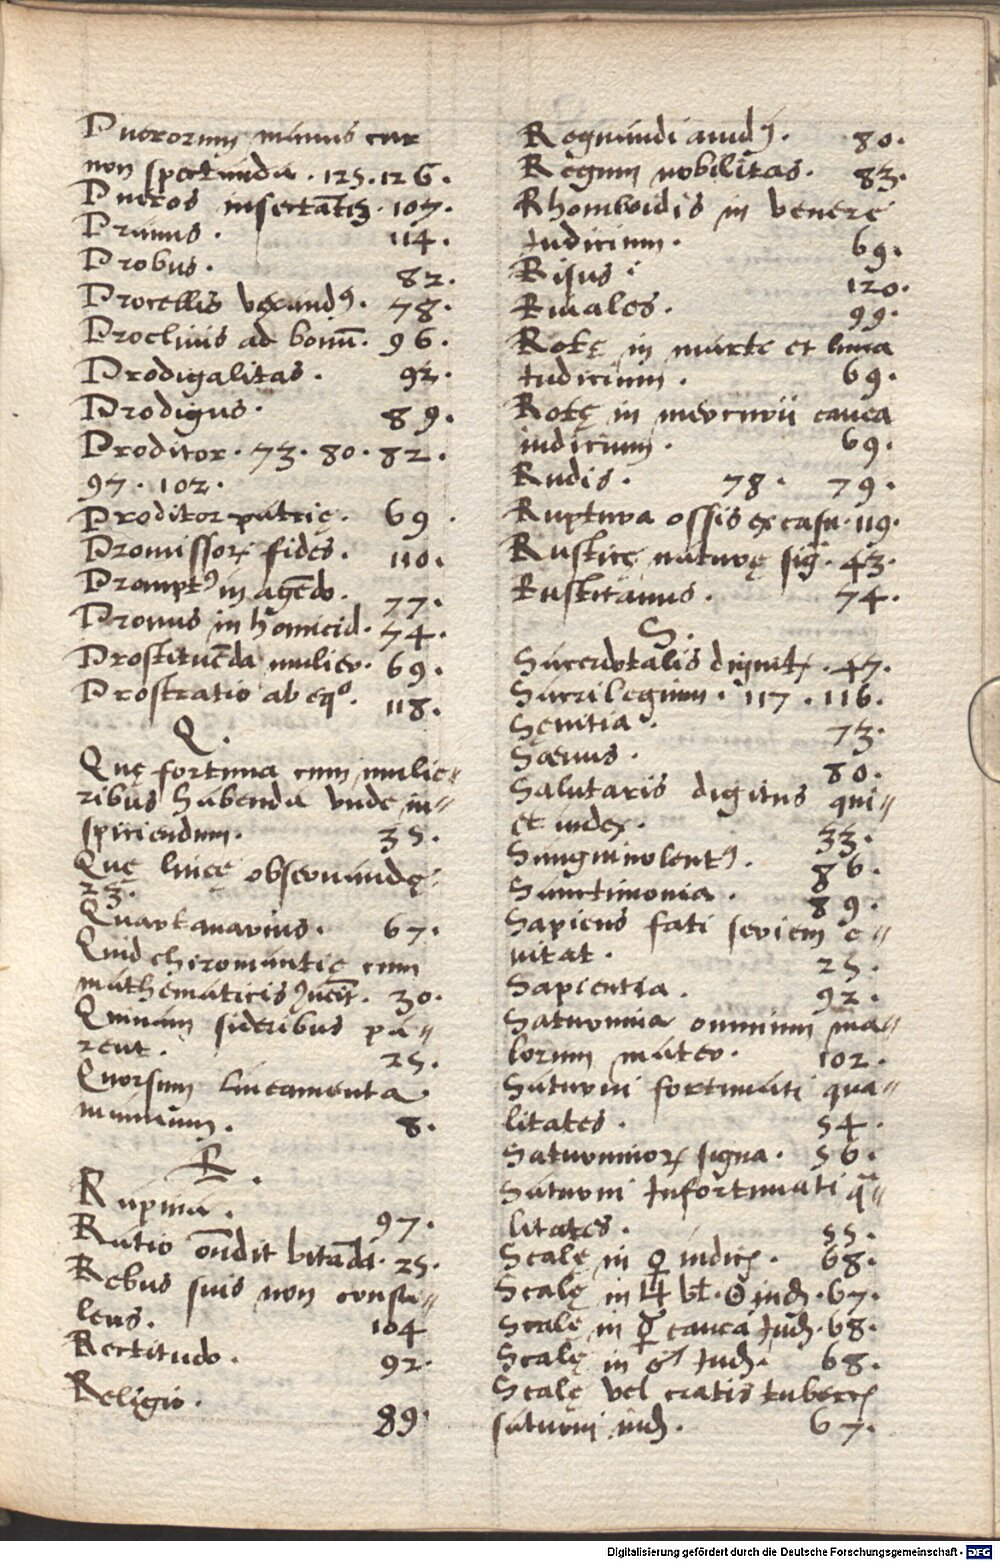 Puerorum manus cur
non spectanda . 125 . 126 .
Pueros insectatq . 107 .
Pranus . 114 .
Probus . 82 .
Procellis vexand9 . 78 .
Proclivis ad bonū . 96 .
Prodigalitas . 92 .
Prodigus . 89 .
Proditor . 73 . 80 . 82 .
97 . 102 .
Proditor patrię . 69 .
Promissorꝝ fides . 110 .
Prompt9 in agēdo . 77 .
Pronus in homicid . 74 .
Prostituēda mulier . 69 .
Prostratio ab eqº . 118 .
Q .
Quę fortuna cum mulie=
ribus habenda unde in=
spiciendum . 35 .
Quę lineę observandę
23 .
Quartanarius . 67 .
Quid chiromantię cum
mathematicis 30 .
Quinam sideribus pa=
rent . 25 .
Quorsum lineamenta
manuum . 8 .
R .
Rapina . 97 .
Ratio 25 .
Rebus suis non consu=
lens . 104
Rectitudo . 92 .
Religio . 89
Regnandi auid9 . 80 .
Regum nobilitas . 83 .
Rhomboidis in venere
iudicium . 69 .
Risus . 120 .
Rivales . 99 .
Rotę in marte et luna
iudicium . 69 .
Rotę in mercurii cauea
iudicium . 69 .
Rudis . 78 . 79 .
Ruptura ossis ex casu . 119 .
Rusticę naturę sig . 43 .
Rusticanus . 74 .
S .
Sacerdotalis dignitꝭ . 47 .
Sacrilegium . 117 . 116 .
Sęvitia . 73 .
Sævus . 80 .
Salutaris digitus qui=
et index . 33 .
Sanguinolent9 . 86 .
Sanctimonia . 89 .
Sapiens fati seriem e=
vitat . 25 .
Sapientia . 92 .
Saturnina omnium ma=
lorum mater . 102 .
Saturni fortunati qua=
litates . 54 .
Saturniorꝝ signa . 56 .
Saturni Infortunati q̄=
litates . 55 .
Scalę in ♀ indicꝭ . 68 .
Scalę in ♃ vł . ☉ iud . 67 .
Scalę in ☿ cauea Iud . 68 .
Scalę in ♂ Iud . 68 .
Scalę vel cratis
saturni iud . 67 .
Digitalisierung gefördert durch die Deutsche Forschungsgemeinschaft - DFG